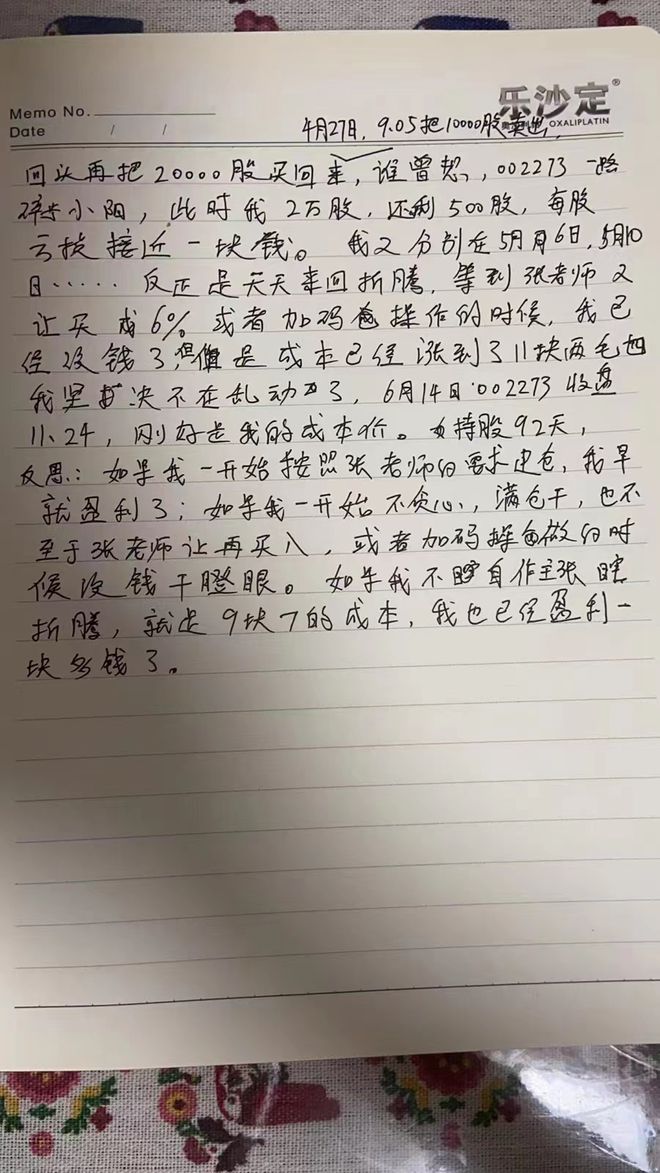 乐沙定®
Memo No.
OXALIPLATIN
Date / /
4月27日，9.05把10000股卖出，
回头再把20000股买回来，谁曾想，002273一路
碎步小阳，此时我2万股，还剩500股，每股
亏损接近一块钱。我又分别在5月6日，5月10
日……反正是天天来回折腾，等到张老师又
让买6%或者加码操作的时候，我已
经没钱了，但是成本已经涨到了11块两毛四
我坚决不在乱动了，6月14日002273收盘
11.24，刚好是我的成本价。持股92天，
反思：如果我一开始按照张老师的要求建仓，我早
就盈利了；如果我一开始不贪心，满仓干，也不
至于张老师让再买入，或者加码操做的时
候没钱干瞪眼。如果我不自作主张瞎
折腾，就是9块7的成本，我也已经盈利一
块多钱了。